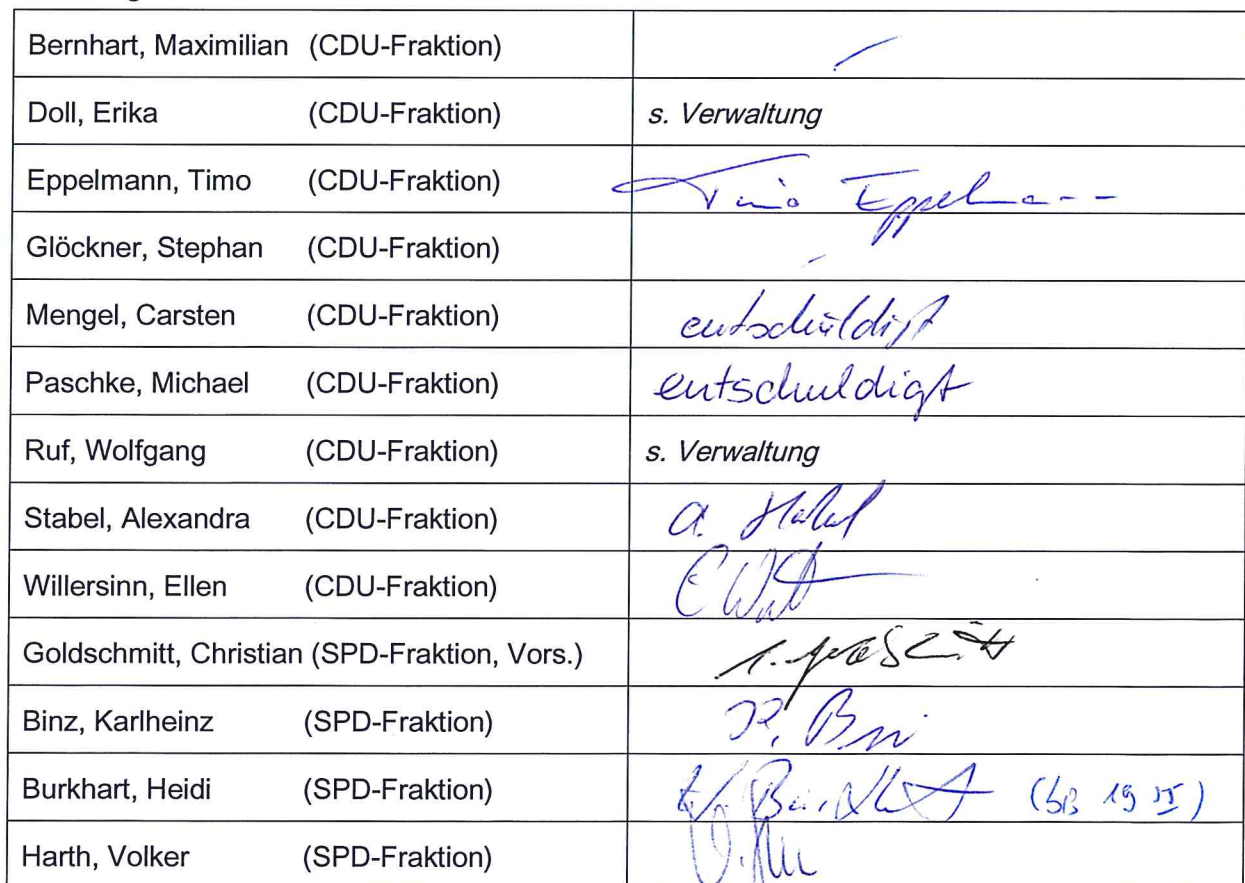 Bernhart, Maximilian (CDU-Fraktion)
Doll, Erika (CDU-Fraktion) s. Verwaltung
Eppelmann, Timo (CDU-Fraktion) Timo Eppelmann
Glöckner, Stephan (CDU-Fraktion)
Mengel, Carsten (CDU-Fraktion) entschuldigt
Paschke, Michael (CDU-Fraktion) entschuldigt
Ruf, Wolfgang (CDU-Fraktion) s. Verwaltung
Stabel, Alexandra (CDU-Fraktion) A. Stabel
Willersinn, Ellen (CDU-Fraktion)
Goldschmitt, Christian (SPD-Fraktion, Vors.)
Binz, Karlheinz (SPD-Fraktion)
Burkhart, Heidi (SPD-Fraktion)
Harth, Volker (SPD-Fraktion)